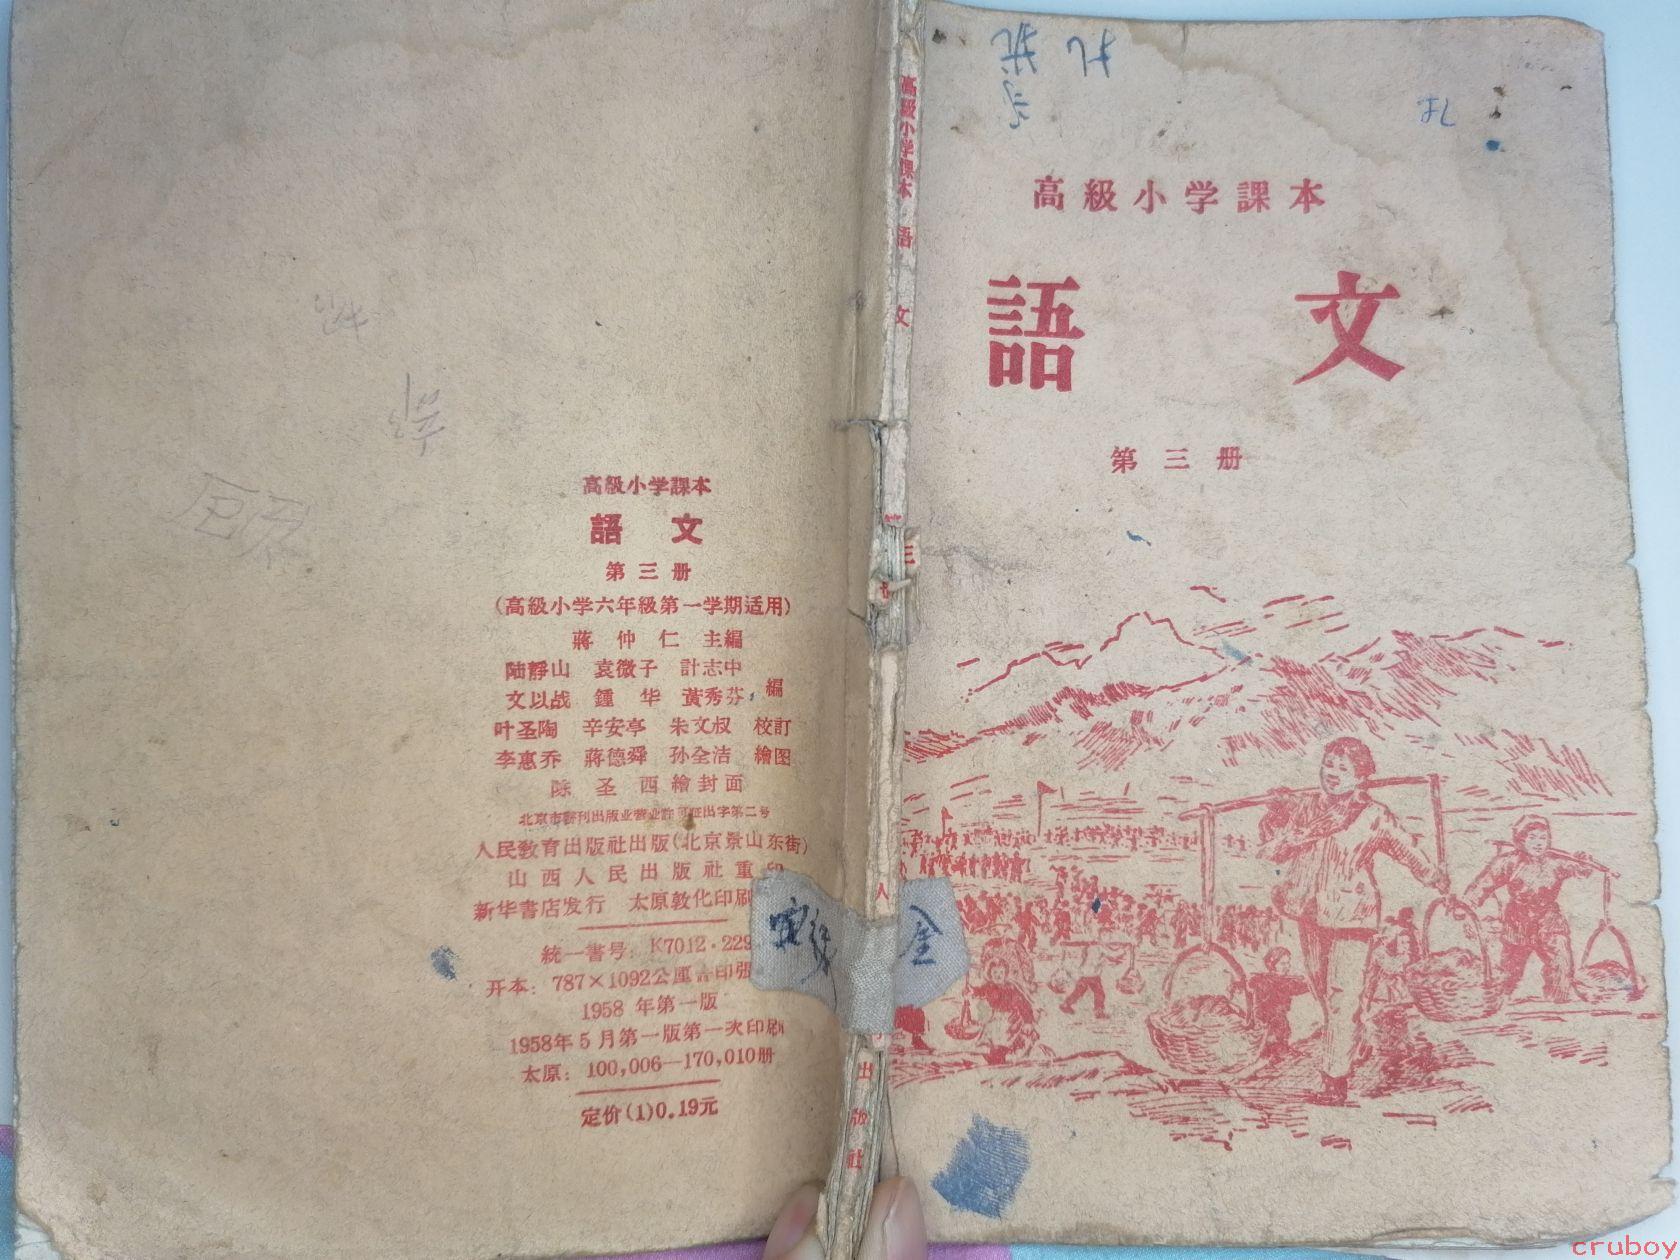 高級小学課本
語 文
第三册
高級小学課本 語 文
三
人
出版社
金
高級小学課本
語 文
第三册
(高級小学六年級第一学期适用)
蔣仲仁 主編
陆靜山 袁微子 計志中
文以战 鍾华 黃秀芬 編
叶圣陶 辛安亭 朱文叔 校訂
李惠乔 蔣德舜 孙全洁 繪图
陈圣西繪封面
北京市書刊出版业营业許可証出字第二号
人民教育出版社出版(北京景山东街)
山西人民出版社重印
新华書店发行 太原敦化印刷
統一書号: K7012·229
开本: 787×1092公厘 印张
1958年第一版
1958年5月第一版第一次印刷
太原: 100,006—170,010册
定价(1)0.19元
cruboy